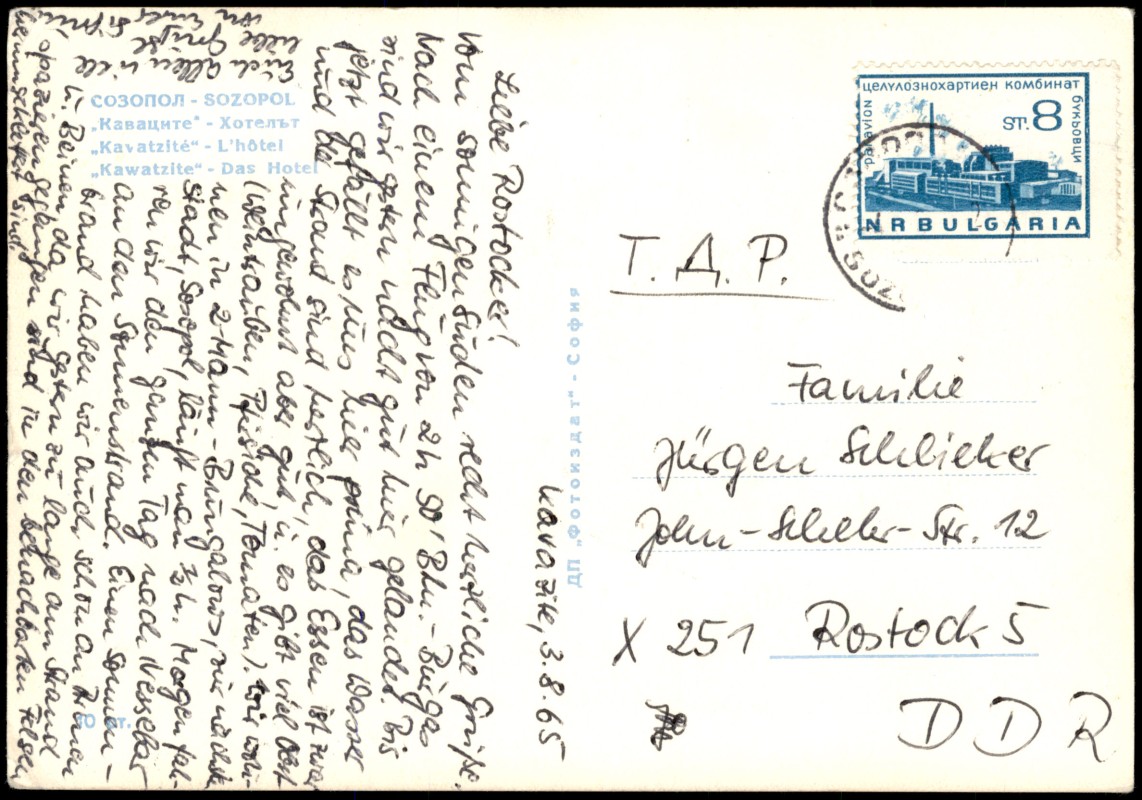 СОЗОПОЛ - SOZOPOL
„Каваците“ - Хотелът
„Kavatzité“ - L'hôtel
„Kawatzite“ - Das Hotel
Kavazite, 3.8.65
Liebe Rostocker!
Vom sonnigen Süden recht herzliche Grüße.
Nach einem Flug von 2h 50' Bln.-Burgas
sind wir gestern nacht gut hier gelandet. Bis
jetzt gefällt es uns hier prima, das Wasser
und der Strand sind herrlich, das Essen ist zwar
ungewohnt aber gut, u. es gibt viel Obst
(Weintrauben, Pfirsiche, Tomaten). Wir woh-
nen in 2-Mann-Bungalows, zur nächsten
Stadt, Sosopol, läuft man 3/4 h. Morgen fah-
ren wir den ganzen Tag nach Nessebar
an den Sonnenstrand. Einen Sonnen-
brand haben wir auch schon an Armen
u. Beinen, da wir gestern zu lange am Strand
spazierengegangen sind u. in den benachbarten Felsen
herumgeklettert sind.
Euch allen viele
liebe Grüße
von
ДП „Фотоиздат“ - София
10 ст.
целулознохартиен комбинат
букьовци
par avion
ST. 8
NR BULGARIA
Т. Д. Р.
Familie
Jürgen Schlieker
John-Schehr-Str. 12
X 251 Rostock 5
DDR